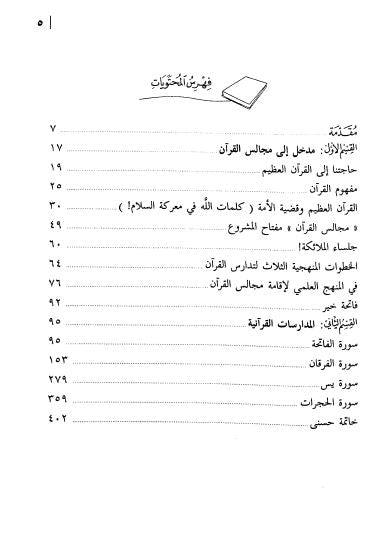 ٥
فهرس المحتويات
مقدمة ٧
القسم الأول: مدخل إلى مجالس القرآن ١٧
حاجتنا إلى القرآن العظيم ١٩
مفهوم القرآن ٢٥
القرآن العظيم وقضية الأمة ( كلمات الله في معركة السلام! ) ٣٠
« مجالس القرآن » مفتاح المشروع ٤٩
جلساء الملائكة! ٦٠
الخطوات المنهجية الثلاث لتدارس القرآن ٦٤
في المنهج العلمي لإقامة مجالس القرآن ٧٦
فاتحة خير ٩٢
القسم الثاني: المدارسات القرآنية ٩٥
سورة الفاتحة ٩٥
سورة الفرقان ١٥٣
سورة يس ٢٧٩
سورة الحجرات ٣٥٩
خاتمة حسنى ٤٠٢